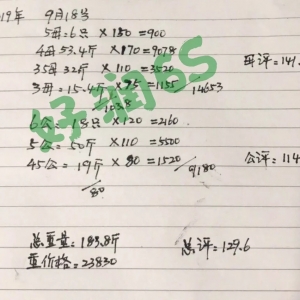 19年 9月18号
5母=6只 ×150=900
4母 53.4斤 ×170=9078
35母 32斤 ×110=3520
3母=15.4斤 ×75=1155
14653
母评=141.
103.8
6公=18只 ×120=2160
5公=50斤 ×110=5500
45公=19斤 ×80=1520
9180
公评=114
80
总重量=183.8斤
总评=129.6
重价格=23830
好润6S